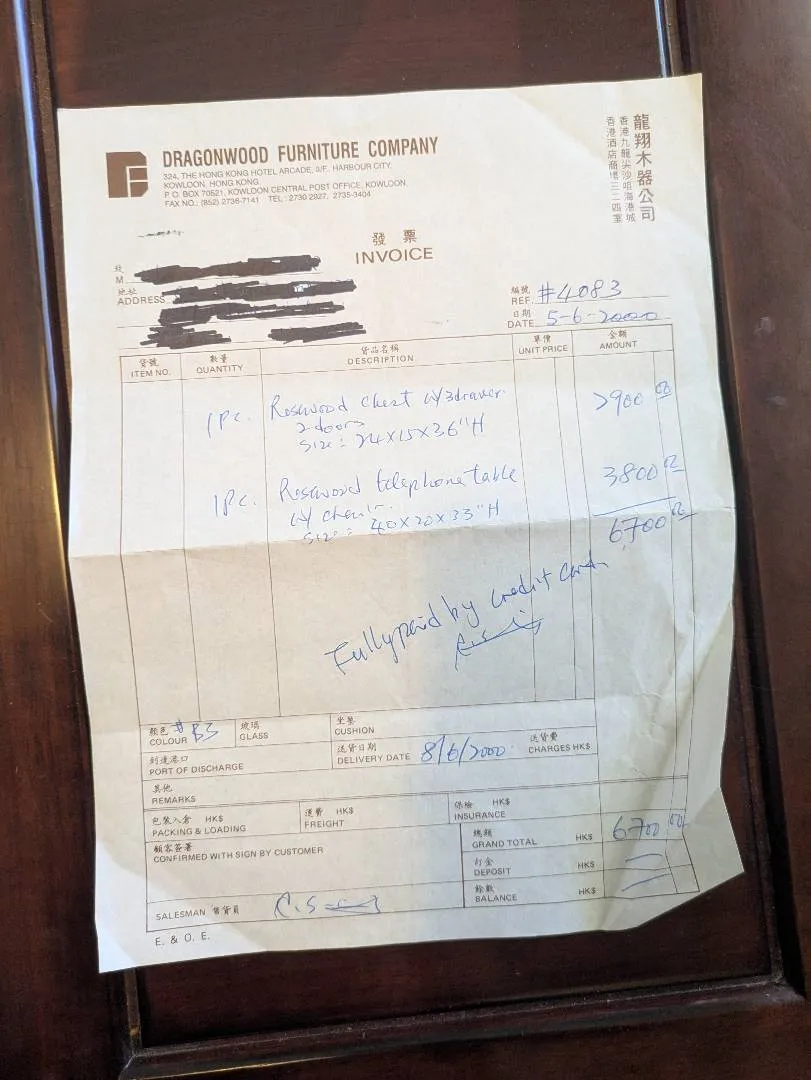 DRAGONWOOD FURNITURE COMPANY
324, THE HONG KONG HOTEL ARCADE, 3/F. HARBOUR CITY,
KOWLOON, HONG KONG.
P.O. BOX 70521, KOWLOON CENTRAL POST OFFICE, KOWLOON.
FAX NO.: (852) 2736-7141 TEL: 2730 2927, 2735-3404
龍翔木器公司
香港九龍尖沙咀海港城
香港酒店商場三二四室
發票
INVOICE
M
地址
ADDRESS
編號
REF. #4083
日期
DATE 5-6-2000
貨號 數量 貨品名稱 單價 金額
ITEM NO. QUANTITY DESCRIPTION UNIT PRICE AMOUNT
1pc. Rosewood chest w/3drawer 2900 00
2 doors
size: 24x15x36"H
1pc. Rosewood telephone table 3800 00
w/ chair
size: 40x20x33"H
6700 00
Fully paid by credit card.
顏色 玻璃 坐墊
COLOUR #B3 GLASS CUSHION
到達港口 送貨日期 送貨費
PORT OF DISCHARGE DELIVERY DATE 8/6/2000 CHARGES HK$
其他
REMARKS
包裝入倉 HK$ 運費 HK$ 保險 HK$
PACKING & LOADING FREIGHT INSURANCE
顧客簽署
CONFIRMED WITH SIGN BY CUSTOMER
總額
GRAND TOTAL HK$ 6700 00
訂金
DEPOSIT HK$
餘數
BALANCE HK$
SALESMAN 售貨員
E. & O. E.